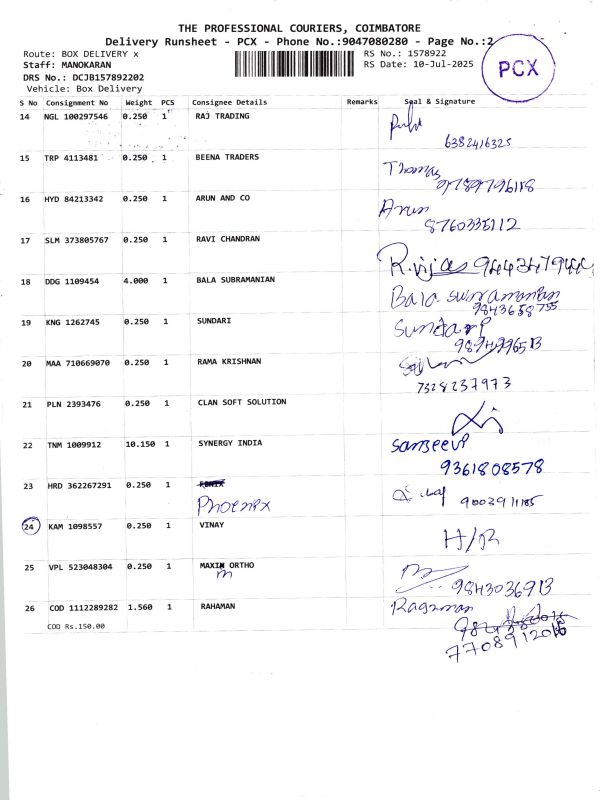 THE PROFESSIONAL COURIERS, COIMBATORE
Delivery Runsheet - PCX - Phone No.:9047080280 - Page No.:2
Route: BOX DELIVERY x RS No.: 1578922
Staff: MANOKARAN RS Date: 10-Jul-2025
PCX
DRS No.: DCJB157892202
Vehicle: Box Delivery
S No Consignment No Weight PCS Consignee Details Remarks Seal & Signature
14 NGL 100297546 0.250 1 RAJ TRADING
6382416325
15 TRP 4113481 0.250 1 BEENA TRADERS Thomas
16 HYD 84213342 0.250 1 ARUN AND CO Arun
8760335112
17 SLM 373805767 0.250 1 RAVI CHANDRAN
18 DDG 1109454 4.000 1 BALA SUBRAMANIAN Bala
9843658755
19 KNG 1262745 0.250 1 SUNDARI
20 MAA 710669070 0.250 1 RAMA KRISHNAN
7328237973
21 PLN 2393476 0.250 1 CLAN SOFT SOLUTION
22 TNM 1009912 10.150 1 SYNERGY INDIA Sanjeevi
9361808578
23 HRD 362267291 0.250 1
Phoenix
24 KAM 1098557 0.250 1 VINAY H/R
25 VPL 523048304 0.250 1 MAXIM ORTHO
m
9843036913
26 COD 1112289282 1.560 1 RAHAMAN Ragaman
COD Rs.150.00